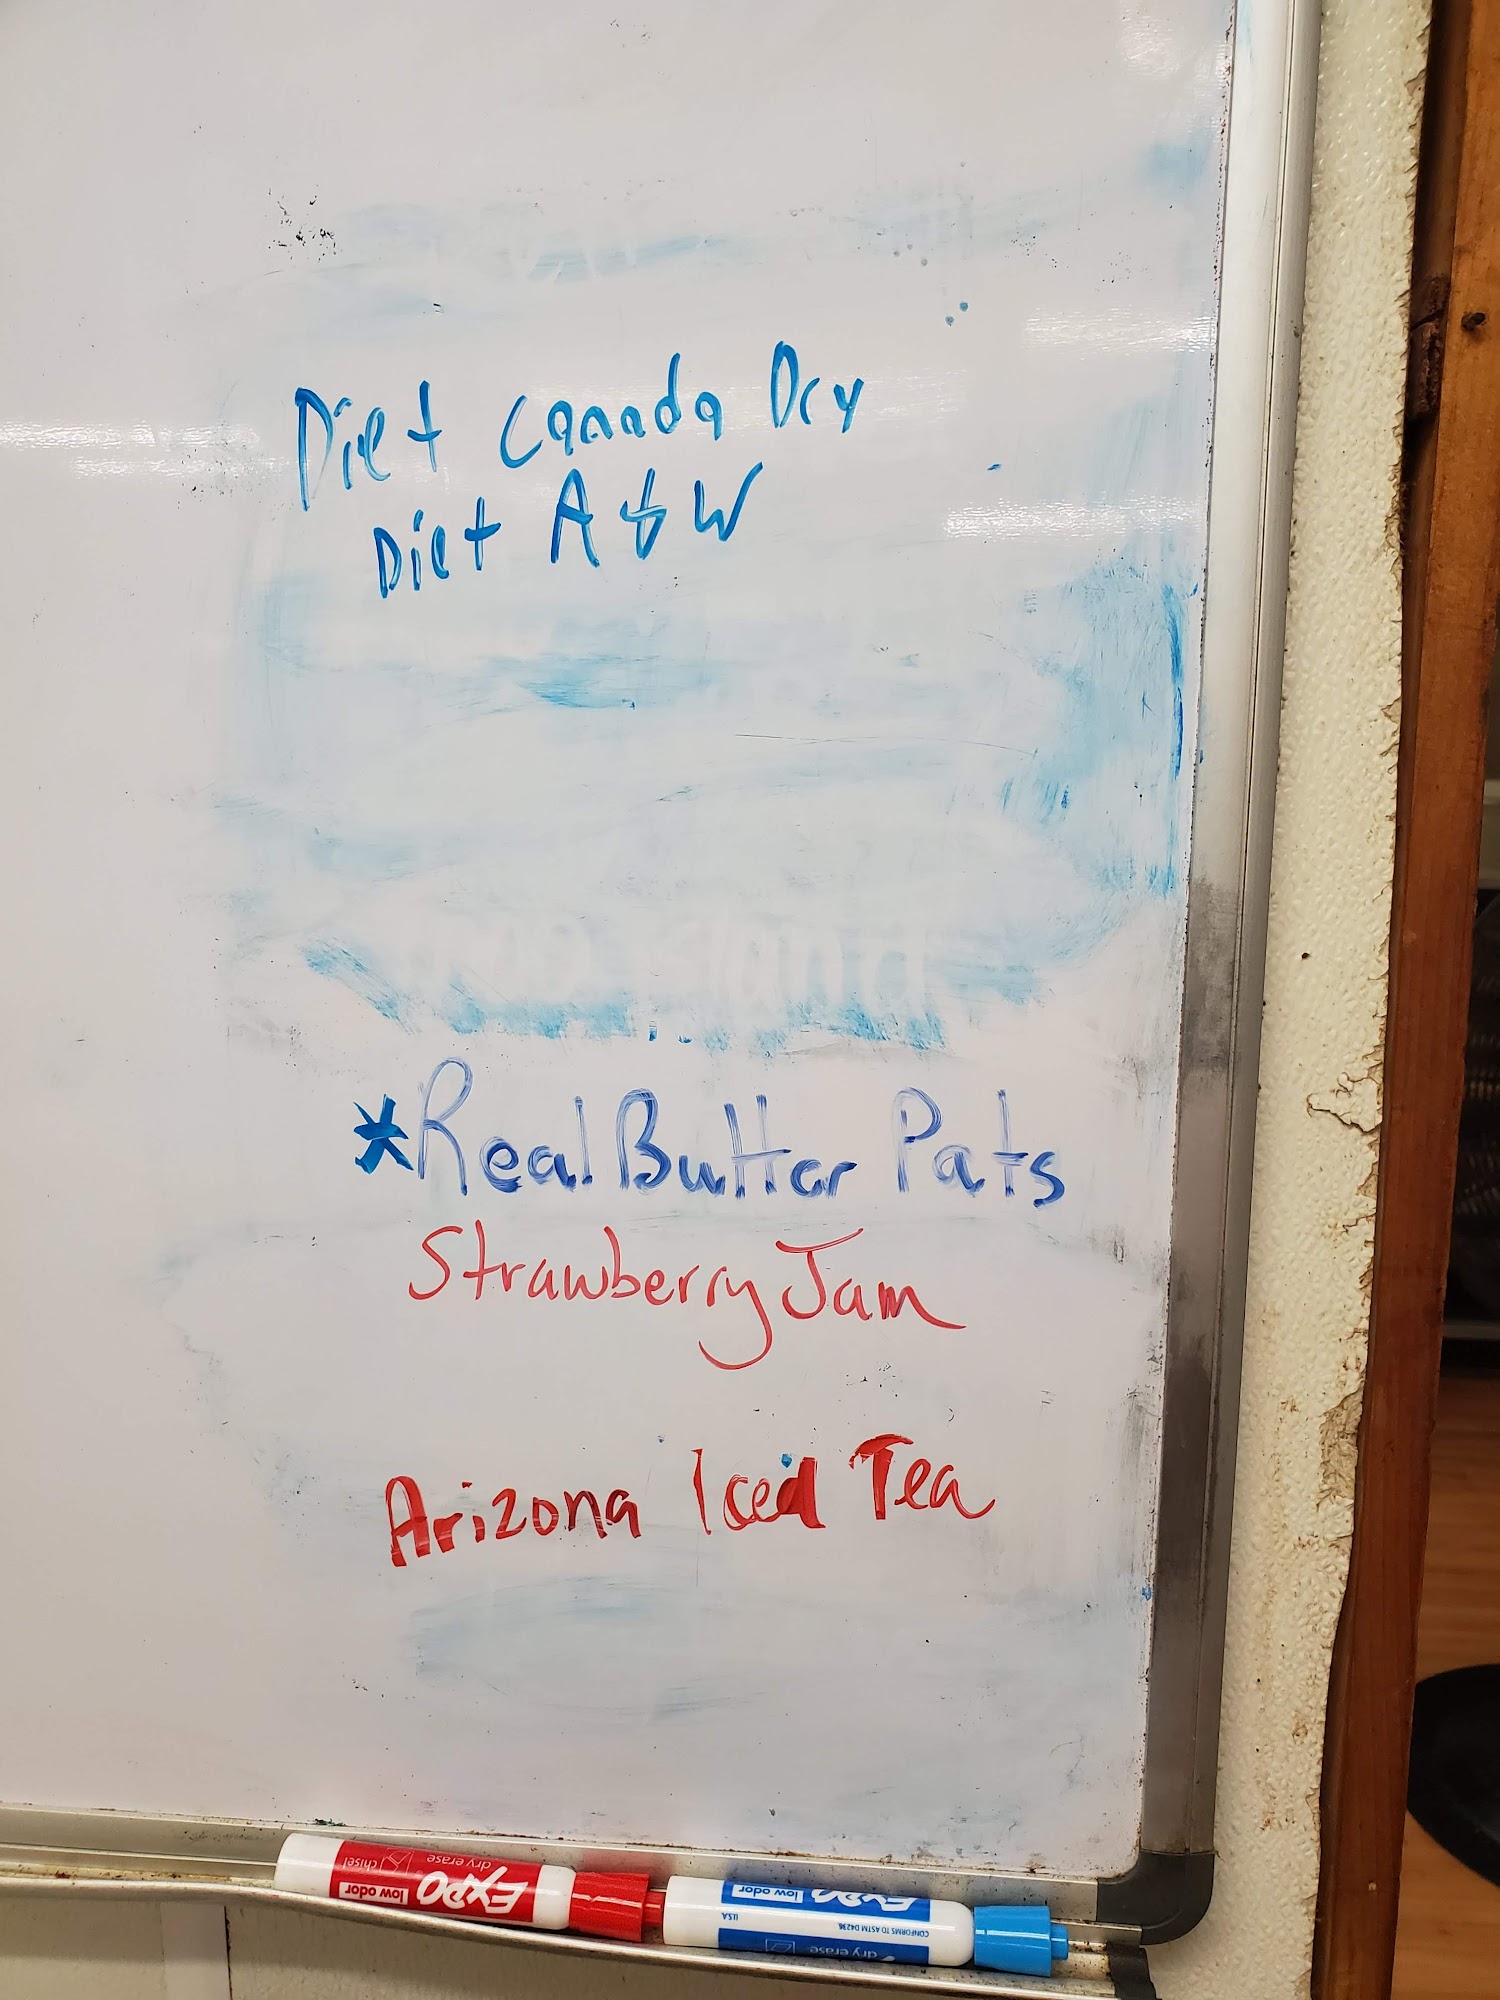 Diet Canada Dry
Diet A & W
*Real Butter Pats
Strawberry Jam
Arizona Iced Tea
EXPO
low odor
dry erase
chisel
EXPO
low odor
CONFORMS TO ASTM D4236
U.S.A.
dry erase